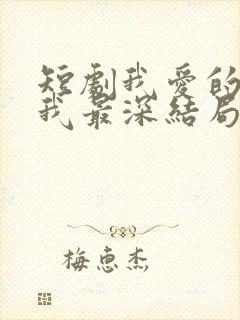 短劇我愛的
我最深結局
梅惠杰